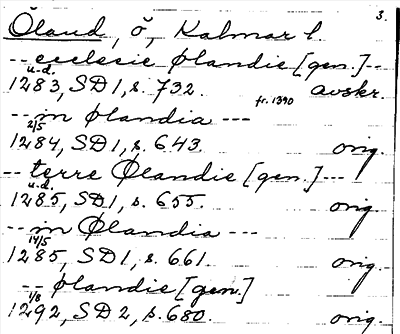 3.
Öland, ö, Kalmar l.
-- ecclesie Ølandie [gen.] --
u.d.
1283, SD 1, s. 732. avskr.
fr. 1390
-- in Ølandia ---
2/5
1284, SD 1, s. 643. orig.
-- terre Ølandie [gen.] ---
u.d.
1285, SD 1, s. 655. orig.
-- in Ølandia ---
14/5
1285, SD 1, s. 661. orig.
-- Ølandie [gen.]
1/8
1292, SD 2, s. 680. orig.